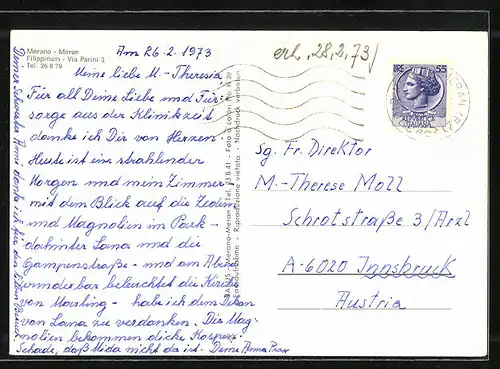 Merano - Meran
Filippinum - Via Parini 3
Tel. 26 8 79
Am 26.2.1973
erh. 28.2.73/
Meine liebe M.-Theresia,
Für all Deine Liebe und Für-
sorge aus der Klinikzeit
danke ich Dir von Herzen.
Heute ist ein strahlender
Morgen und mein Zimmer
mit dem Blick auf die Zedern
und Magnolien im Park -
dahinter Lana und die
Gampenstraße - und am Abend
wunderbar beleuchtet die Kirche
von Marling - habe ich dem Dekan
von Lana zu verdanken. Die Mag-
nolien bekommen dicke Knospen.
Schade, daß Mida nicht da ist. Deine Anna
Deiner Schwester danke ich für den lieben Besuch
Merano-Meran - Tel. 23 8 41 - Foto a colori No. M 39
Riproduzione vietata - Nachdruck verboten
55
Sg. Fr. Direktor
M.-Therese Moll
Schrotstraße 3/Arzl
A-6020 Innsbruck
Austria